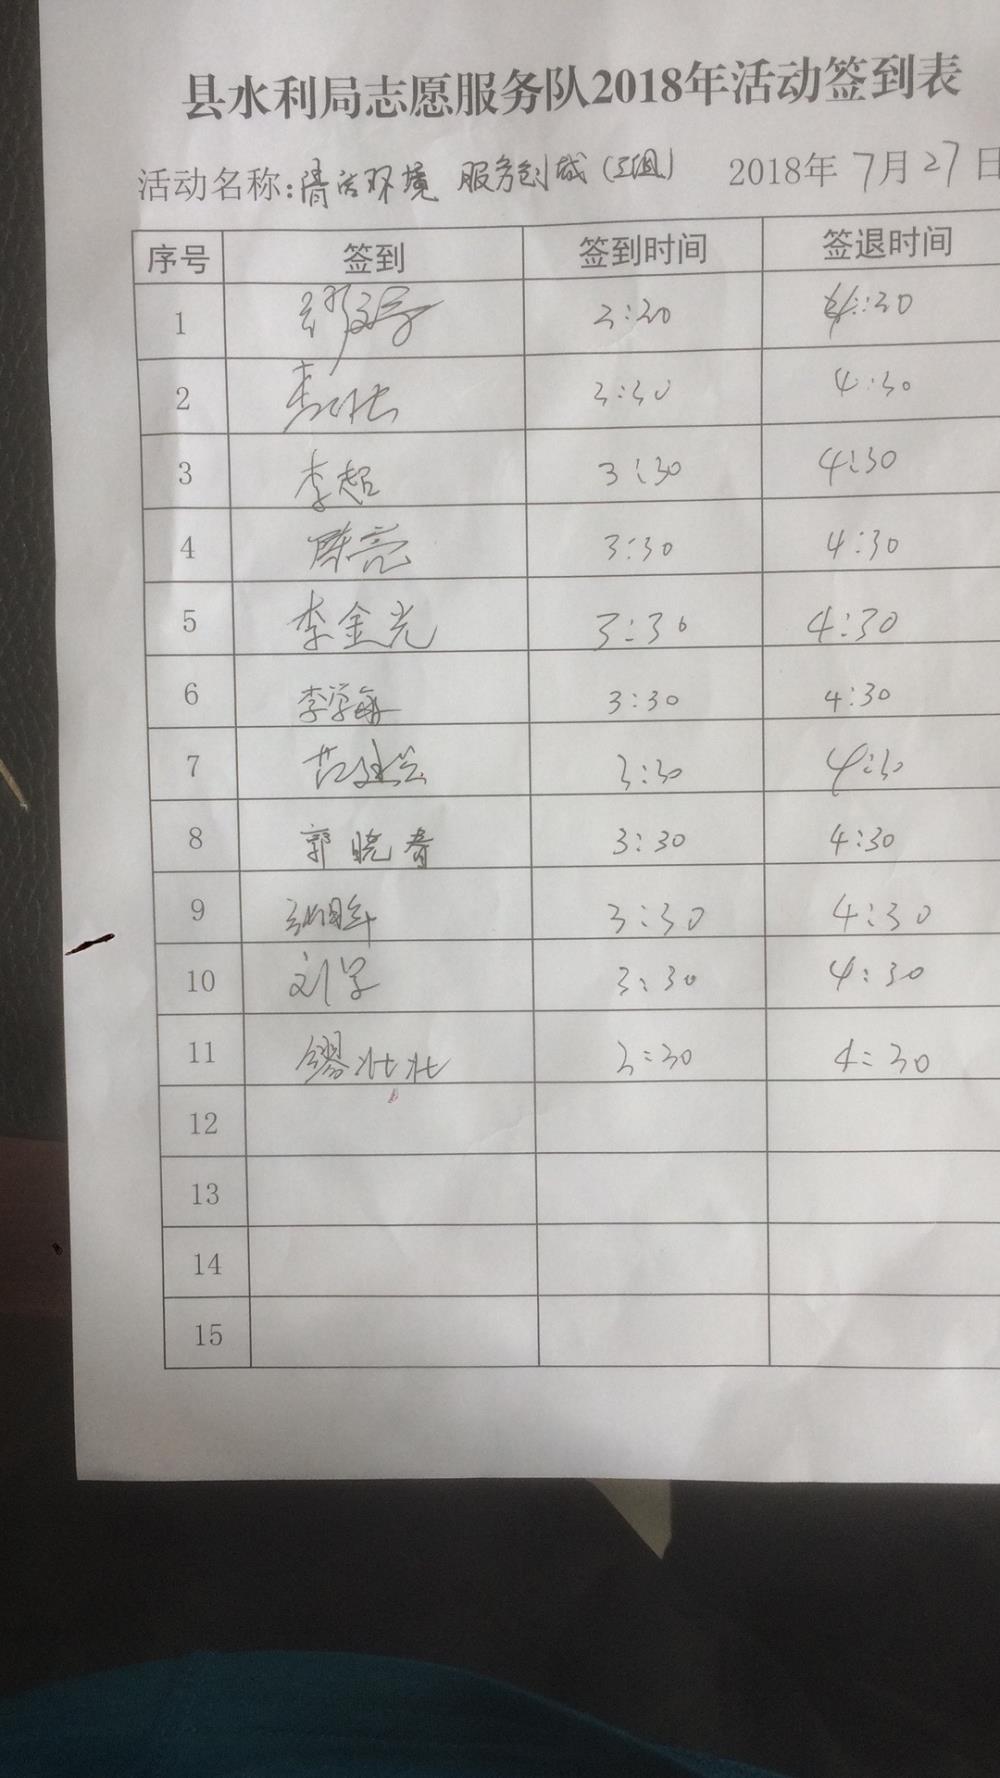 县水利局志愿服务队2018年活动签到表
活动名称:清洁环境 服务创城(三组) 2018年7月27日
序号 签到 签到时间 签退时间
1 3:30 4:30
2 3:30 4:30
3 李超 3:30 4:30
4 陈亮 3:30 4:30
5 李金光 3:30 4:30
6 李学敏 3:30 4:30
7 范建兴 3:30 4:30
8 郭晓春 3:30 4:30
9 3:30 4:30
10 刘军 3:30 4:30
11 缪壮壮 3:30 4:30
12
13
14
15